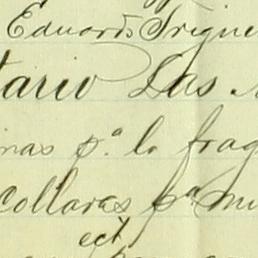 Eduardo Trigue
tario Las
nas pª la frag
collares pª mu
ect